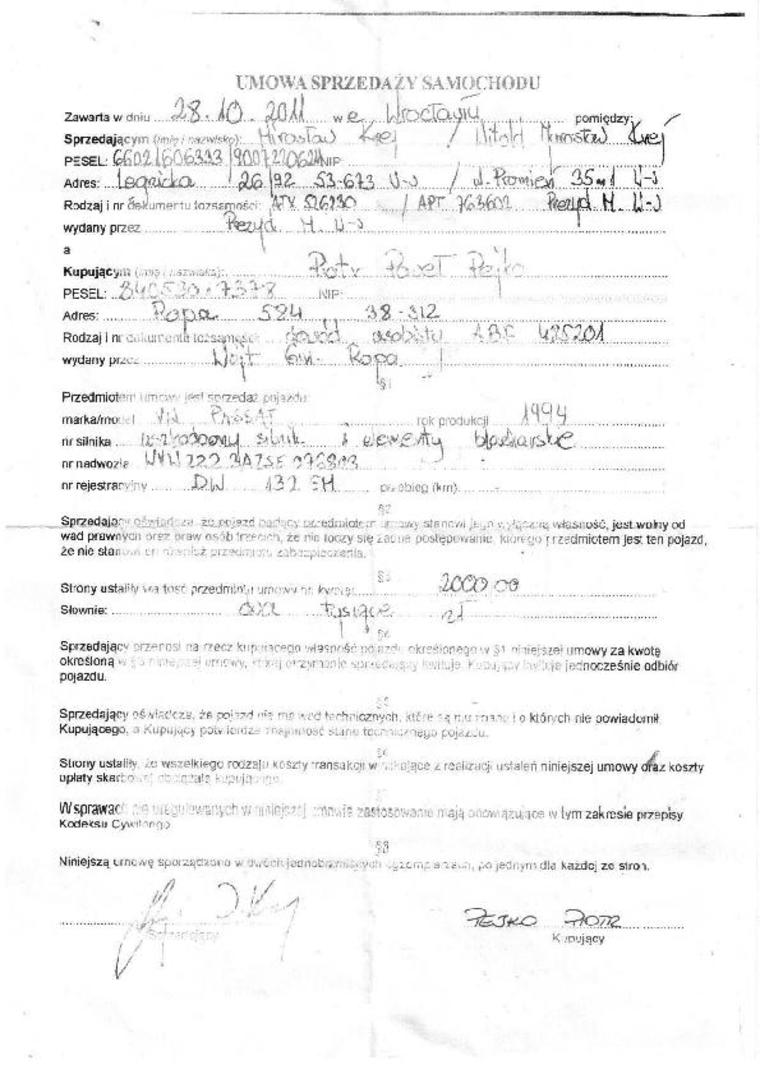 UMOWA SPRZEDAŻY SAMOCHODU
Zawarta w dniu 28.10.2011 w e Wrocławiu pomiędzy:
Sprzedającym (imię i nazwisko): Mirosław Krej / Witold Mirosław Krej
PESEL: NIP
Adres: Legnicka 26/92 53-673 W-w / ul. Promień 35 W-w
Rodzaj i nr dokumentu tożsamości: 526230 / APT 763602 Prezyd M. W-w
wydany przez Prezyd. M. W-w
a
Kupującym (imię i nazwisko): Piotr Paweł Pejko
PESEL: NIP:
Adres: Ropa 584 38-312
Rodzaj i nr dokumentu tożsamości dowód osobisty 485201
wydany przez Wójt Gm. Ropa
§1
Przedmiotem umowy jest sprzedaż pojazdu:
marka/model VW PASSAT rok produkcji 1994
nr silnika uszkodzony silnik i elementy blacharskie
nr nadwozia
nr rejestracyjny DW 132 EM przebieg (km) -
§2
Sprzedający oświadcza, że pojazd będący przedmiotem umowy stanowi jego wyłączną własność, jest wolny od
wad prawnych oraz praw osób trzecich, że nie toczy się żadne postępowanie, którego przedmiotem jest ten pojazd,
że nie stanowi on również przedmiotu zabezpieczenia.
§3
Strony ustaliły wartość przedmiotu umowy na kwotę: 2000,00
Słownie: dwa tysiące zł
§4
Sprzedający przenosi na rzecz kupującego własność pojazdu określonego w §1 niniejszej umowy za kwotę
określoną w §3 niniejszej umowy, której otrzymanie sprzedający kwituje. Kupujący kwituje jednocześnie odbiór
pojazdu.
§5
Sprzedający oświadcza, że pojazd nie ma wad technicznych, które są mu znane i o których nie powiadomił
Kupującego, a Kupujący potwierdza znajomość stanu technicznego pojazdu.
§6
Strony ustaliły, że wszelkiego rodzaju koszty transakcji wynikające z realizacji ustaleń niniejszej umowy oraz koszty
opłaty skarbowej obciążają kupującego.
W sprawach nie uregulowanych w niniejszej umowie zastosowanie mają obowiązujące w tym zakresie przepisy
Kodeksu Cywilnego
§8
Niniejszą umowę sporządzono w dwóch jednobrzmiących egzemplarzach, po jednym dla każdej ze stron.
PEJKO PIOTR
Sprzedający Kupujący